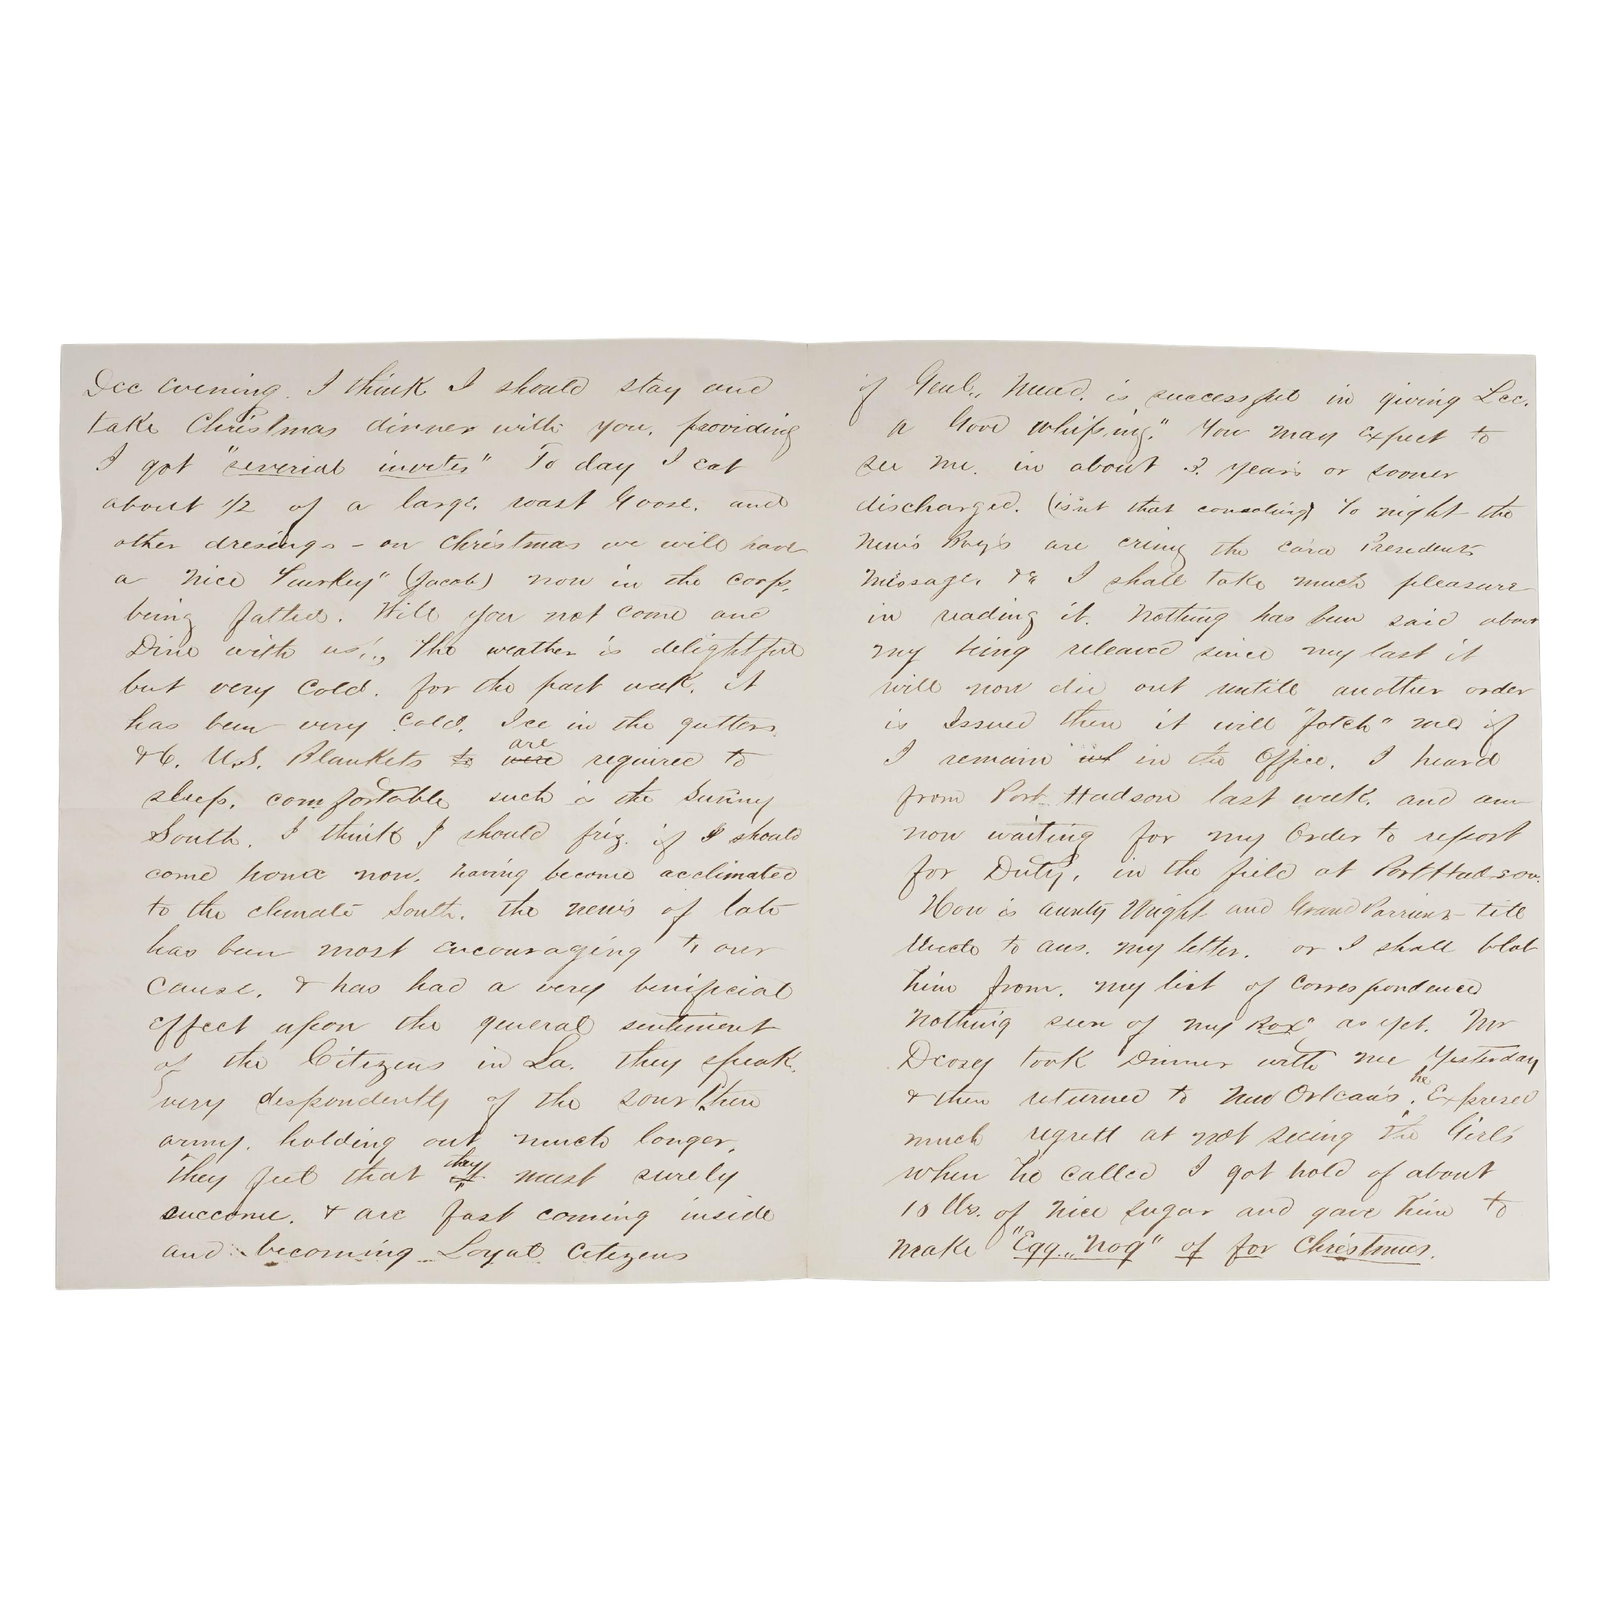 Dec evening. I think I should stay and
take Christmas dinner with you, providing
I got "severial invites" To day I eat
about 1/2 of a large, roast Goose, and
other dresings - on Christmas we will have
a nice "Turkey" (Jacob) now in the corps,
being fatted. Will you not come and
Dine with us., The weather is delightful
but very Cold. for the past week, it
has been very Cold, Ice in the gutters
&C. U.S. Blankets to were are required to
sleep, comfortable such is the Sunny
South. I think I should friz. if I should
come home now, having become acclimated
to the climate South. The news of late
has been most encouraging to our
Cause, & has had a very benificial
effect upon the general sentiment
of the Citizens in La. they speak,
very despondently of the southern
army, holding out, much longer,
They feel that they must surely
succome, & are fast coming inside
and becoming Loyal Citizens
if Genl,, Mead, is successful in giving Lee,
a Good whipping." You may expect to
see me, in about 3 years or sooner
discharged. (isn't that consoling) To night the
News Boy's are cring the Presidents
Message, &c I shall take much pleasure
in reading it. Nothing has been said about
my being released since my last it
will now die out untill another order
is Issued then it will "fotch" me if
I remain in the Office. I heard
from Port Hudson last week, and am
now waiting for my Order to report
for Duty, in the field at Port Hudson.
How is aunty Wright and Grand Parrients till
Uncle to ans. my letter, or I shall blot
him from, my list of Correspondence
Nothing seen of my Box as yet. Mr
took Dinner with me Yesterday
& then returned to New Orlean's, he Expresed
much regrett at not seeing the Girl's
when he called I got hold of about
10 lbs. of nice sugar and gave him to
make "Egg,,Nog" of for Christmas.